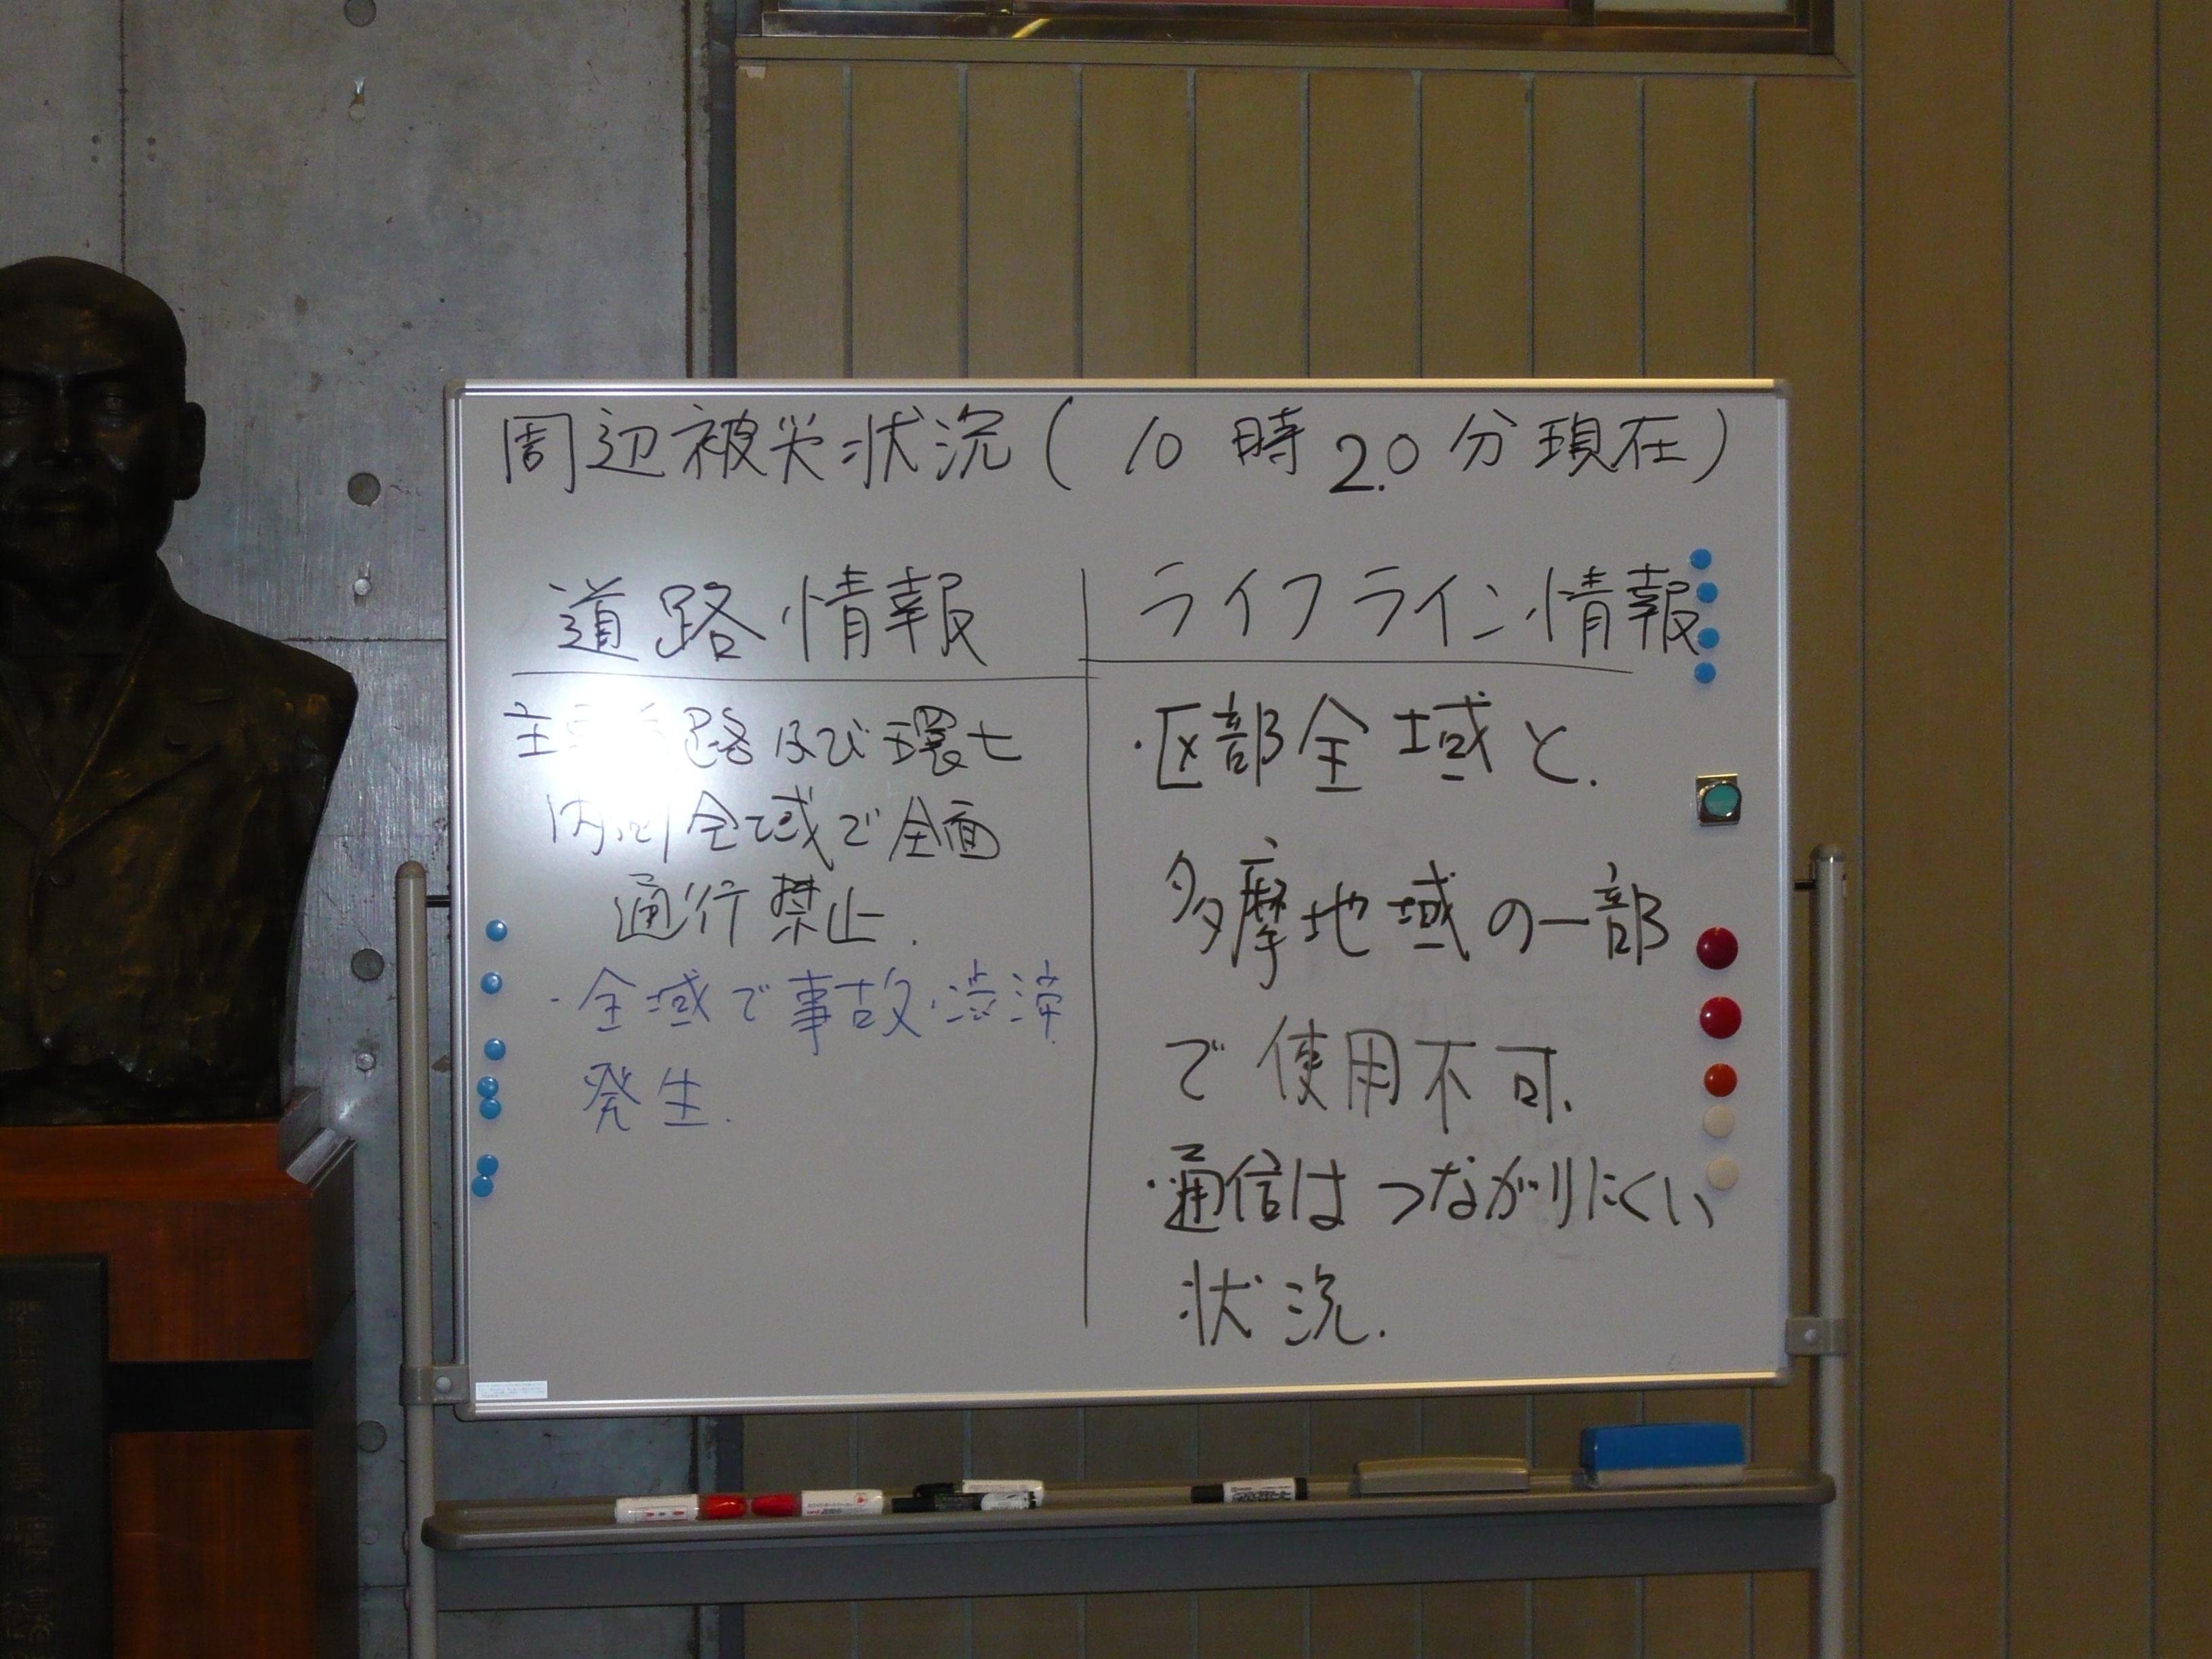 周辺被災状況( 10 時 20 分現在)
道路情報
主要道路及び環七
内側全域で全面
通行禁止.
・全域で事故・渋滞
発生.
ライフライン情報
・区部全域と.
多摩地域の一部
で使用不可.
・通信はつながりにくい
状況.